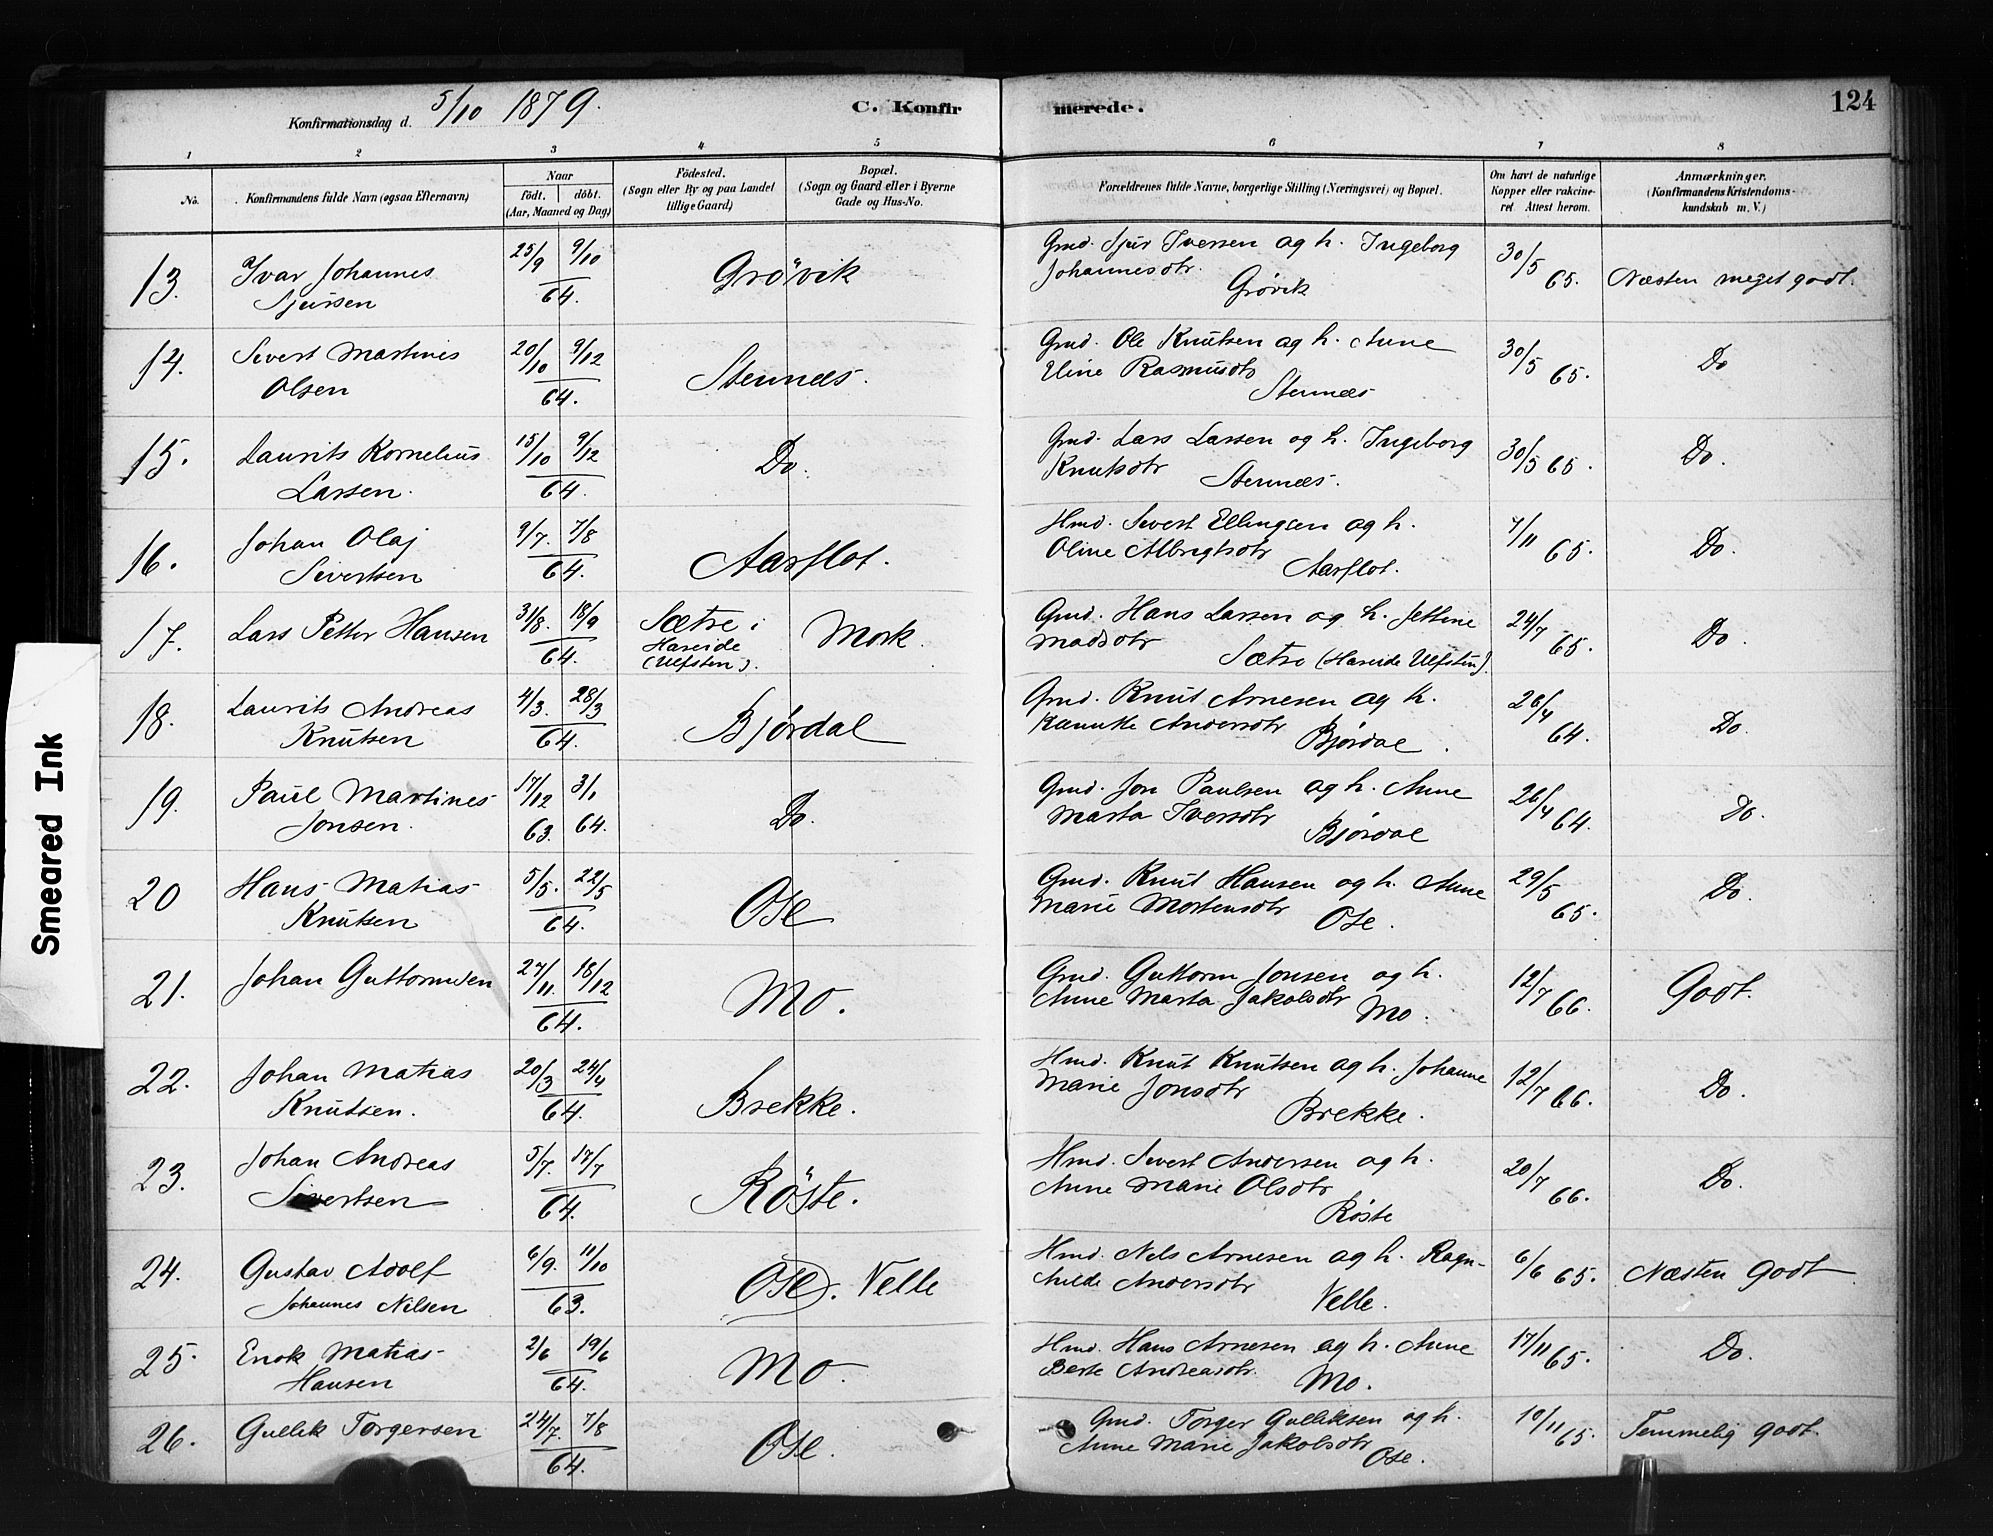 Konfirmationsdag d. 5/10 1879.
C. Konfir
merede.
124
1 2 3 4 5 6 7 8
No.
Konfirmandens fulde Navn (ogsaa Efternavn)
Naar
födt. döbt.
(Aar, Maaned og Dag)
Födested.
(Sogn eller By og paa Landet
tillige Gaard)
Bopæl.
(Sogn og Gaard eller i Byerne
Gade og Hus-No.
Forældrenes fulde Navne, borgerlige Stilling (Næringsvei) og Bopæl.
Om havt de naturlige
Kopper eller vakcine-
ret Attest herom.
Anmærkninger.
(Konfirmandens Kristendoms-
kundskab m. V.)
13. Ivar Johannes 25/9 9/10 Grövik Gmd. Sjur Iversen og h. Ingeborg 30/5
Sjursen 64. Johannesdtr. Grövik 65. Næsten meget godt.
14. Sivert Martinus 20/10 9/12 Stennæs. Gmd. Ole Knutsen og h. Anne 30/5 Do
Olsen 64. Eline Rasmusdtr Stennæs 65.
15. Laurits Kornelius 15/10 9/12 Do. Gmd. Lars Larsen og h. Ingeborg 30/5 65. Do.
Larsen. 64. Knutsdtr Stennæs.
16. Johan Olaj 9/7. 7/8 Aarflot. Hmd. Sivert Ellingsen og h. 7/11 65. Do.
Sivertsen 64. Oline Albrigtsdtr Aarflot.
17. Lars Petter Hansen 31/8. 18/9 Sætre i Mork. Gmd. Hans Larsen og h. Jettine 24/7 65. Do.
64. Hareide (Ulfsten). Madsdtr Sætre (Hareide Ulfsten).
18. Laurits Andreas 4/3. 28/3 Bjórdal Gmd. Knut Arnesen og h. 26/4 64. Do.
Knutsen 64. Andersdtr Bjórdal.
19. Paul Martines 17/12 3/1 Do. Gmd. Jon Paulsen og h. Anne 26/4 64. Do.
Jonsen. 63. 64. Marta Iversdtr Bjórdal
20 Hans Matias 5/5. 22/5 Ose Gmd. Knut Hansen og h. Anne 29/5 65. Do.
Knutsen 64. Marie Mortensdtr Ose.
21. Johan Guttormsen 27/11. 18/12 Mo. Gmd. Guttorm Jonsen og h. 12/7 66. Godt.
64. Anne Marta Jakobsdtr Mo.
22. Johan Matias 20/3 24/4 Brekke. Hmd. Knut Knutsen og h. Johanne 12/7 66. Do.
Knutsen. 64. Marie Jonsdtr Brekke.
23. Johan Andreas 5/7. 17/7 Röste. Hmd. Sivert Andersen og h. 20/7 66. Do.
Sivertsen 64. Anne Marie Olsdtr Röste
24. Gustav Adolf 6/9. 11/10 Ose. Velle Hmd. Nils Arnesen og h. Ragn- 6/6 65. Næsten godt
Johannes Nilsen 63. hilde Andersdtr Velle.
25. Enok Matias 2/6 19/6 Mo. Hmd. Hans Arnesen og h. Anne 17/11 65. Do.
Hansen 64. Berte Andreasdtr. Mo.
26. Gullik Torgersen 24/7. 7/8 Ose. Gmd. Torger Gulliksen og h. 10/11 65. Temmelig godt.
64. Anne Marie Jakobsdtr Ose.
Smeared Ink